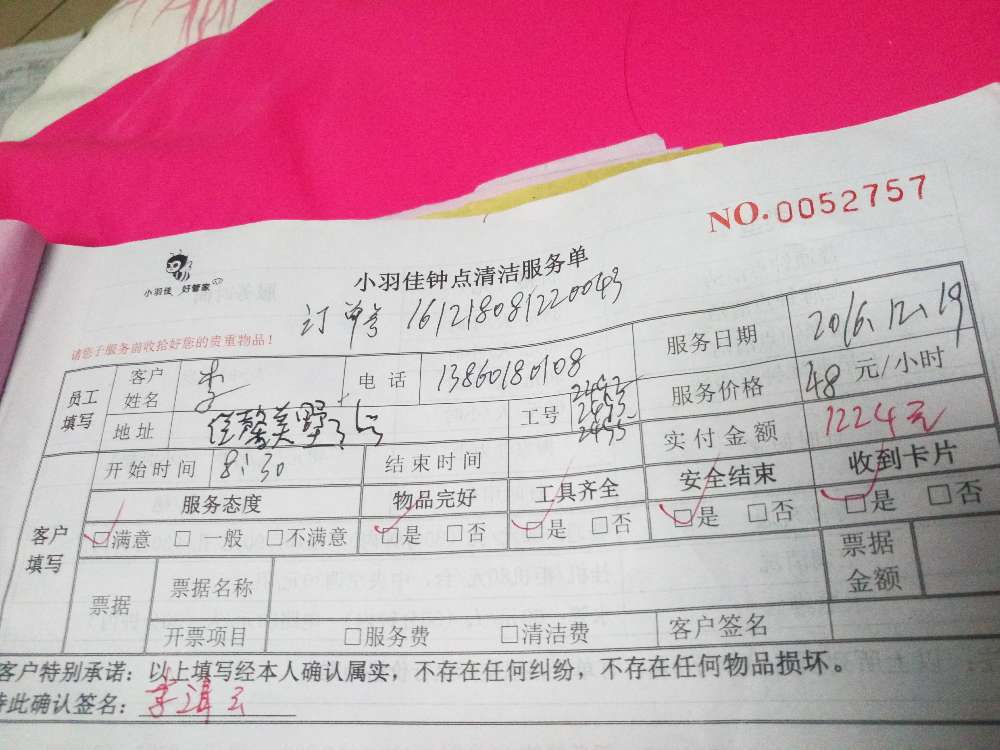 NO.0052757
小羽佳 好管家
小羽佳钟点清洁服务单
订单号 161218081220043
请您于服务前收拾好您的贵重物品！
员工填写 客户姓名 李 电话 13860180108 服务日期 2016.12.19
地址 佳馨美墅 工号 2495 服务价格 48 元/小时
开始时间 8:30 结束时间 实付金额 1224元
客户填写 服务态度 物品完好 工具齐全 安全结束 收到卡片
☑满意 □一般 □不满意 ☑是 □否 ☑是 □否 ☑是 □否 ☑是 □否
票据 票据名称 票据金额
开票项目 □服务费 □清洁费 客户签名
客户特别承诺：以上填写经本人确认属实，不存在任何纠纷，不存在任何物品损坏。
特此确认签名：